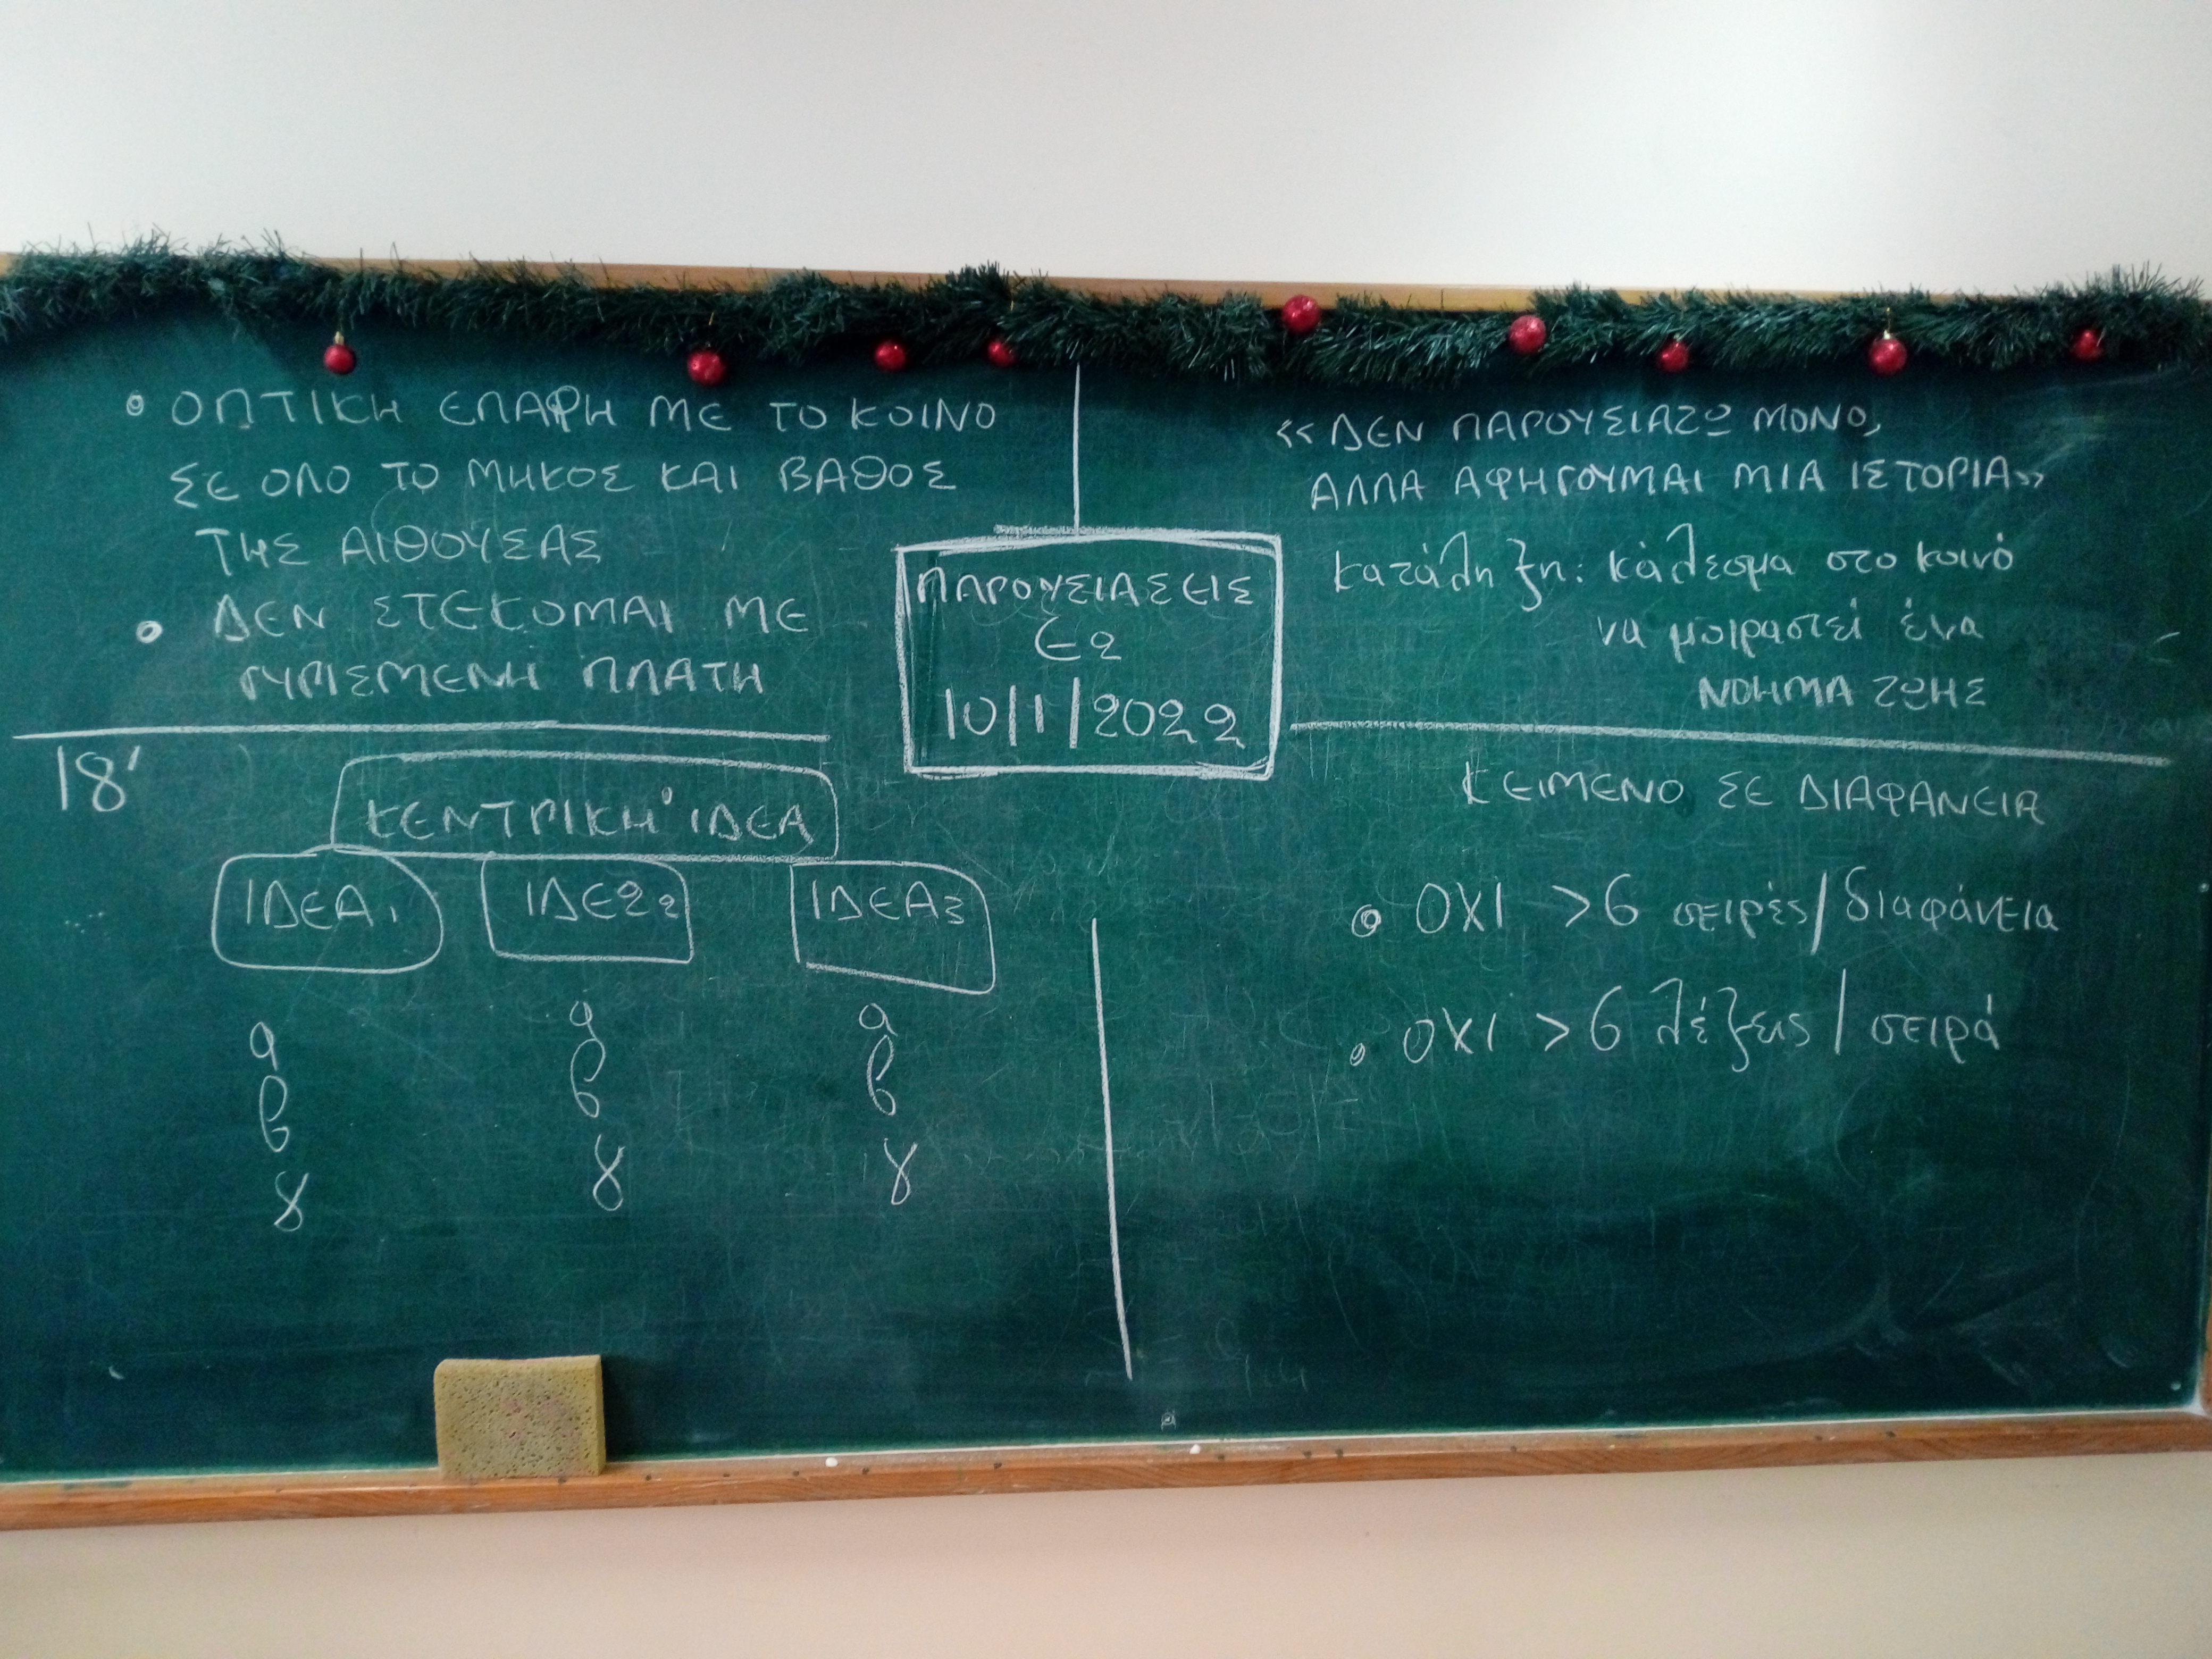 • ΟΠΤΙΚΗ ΕΠΑΦΗ ΜΕ ΤΟ ΚΟΙΝΟ
ΣΕ ΟΛΟ ΤΟ ΜΗΚΟΣ ΚΑΙ ΒΑΘΟΣ
ΤΗΣ ΑΙΘΟΥΣΑΣ
• ΔΕΝ ΣΤΕΚΟΜΑΙ ΜΕ
ΓΥΡΙΣΜΕΝΗ ΠΛΑΤΗ
ΠΑΡΟΥΣΙΑΣΕΙΣ
Ε2
10/1/2022
«ΔΕΝ ΠΑΡΟΥΣΙΑΖΩ ΜΟΝΟ,
ΑΛΛΑ ΑΦΗΓΟΥΜΑΙ ΜΙΑ ΙΣΤΟΡΙΑ»
Κατάληξη: κάλεσμα στο κοινό
να μοιραστεί ένα
ΝΟΗΜΑ ΖΩΗΣ
18'
ΚΕΝΤΡΙΚΗ ΙΔΕΑ
ΙΔΕΑ1 ΙΔΕ22 ΙΔΕΑ3
α α α
β β β
γ γ γ
ΚΕΙΜΕΝΟ ΣΕ ΔΙΑΦΑΝΕΙΑ
• ΟΧΙ >6 σειρές/διαφάνεια
• ΟΧΙ >6 λέξεις/σειρά